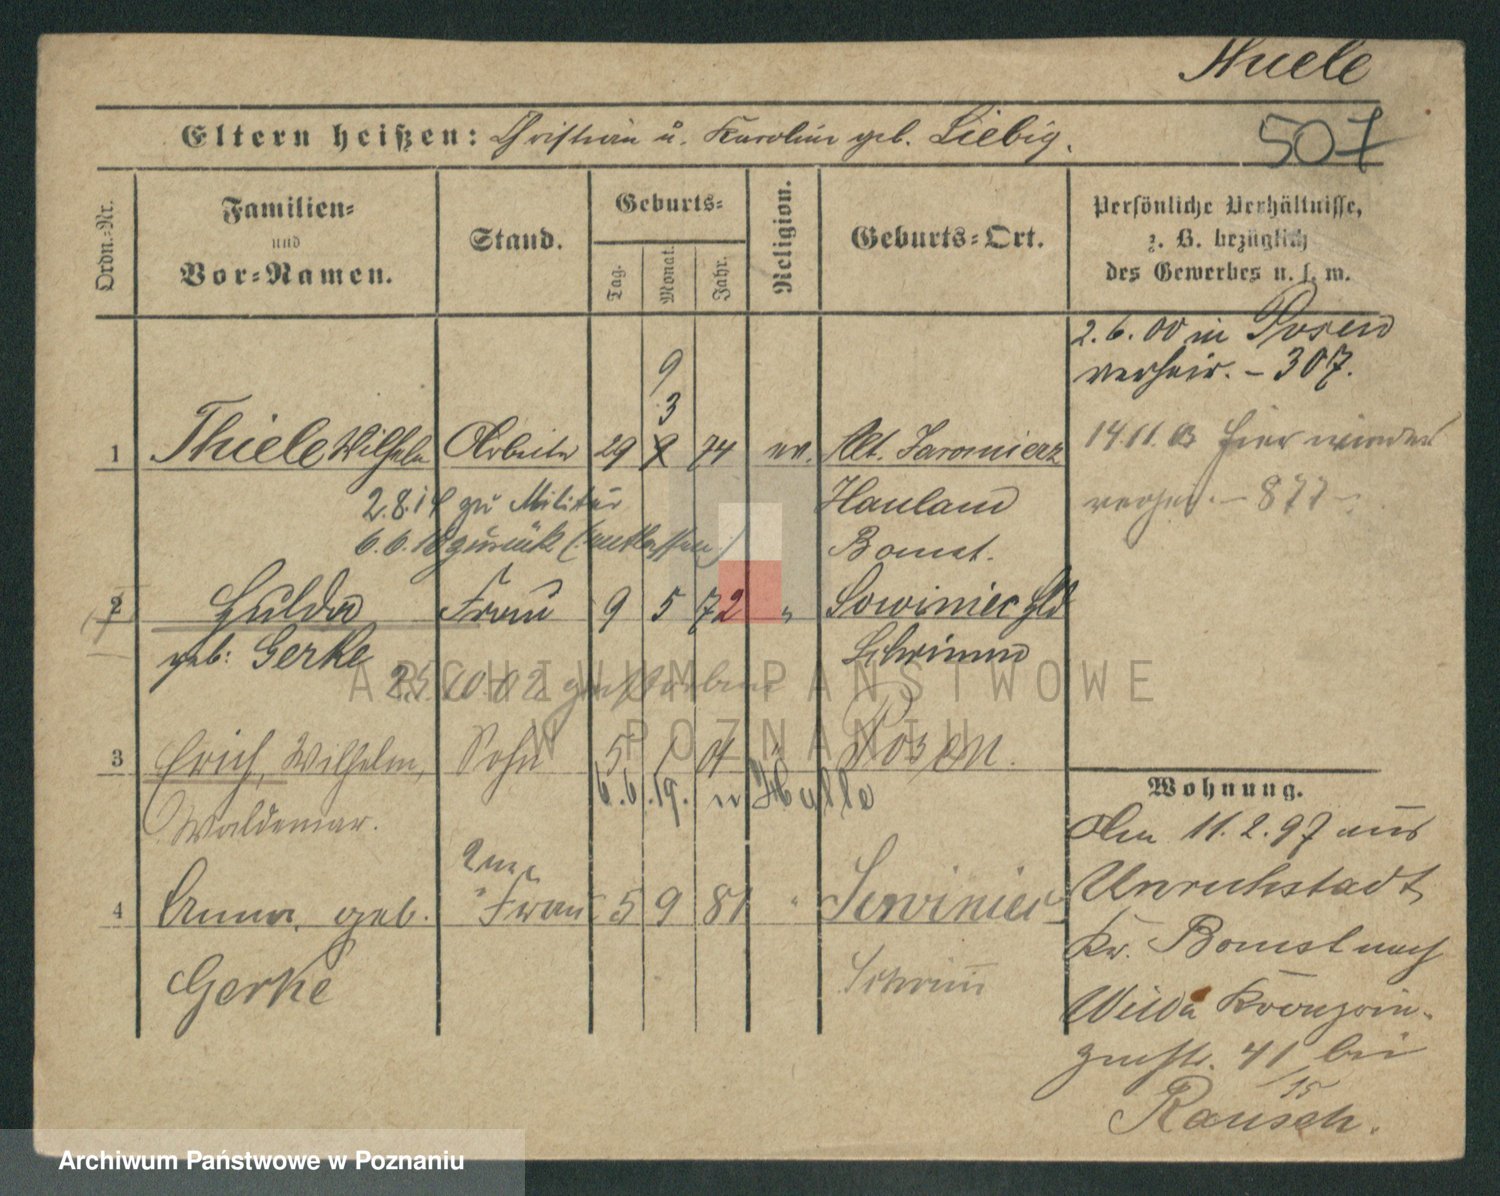 Thiele
Eltern heißen: Christian u. Karoline geb. Liebig.
507
Ordn.=Nr.
Familien=
und
Vor=Namen.
Stand.
Geburts=
Tag. Monat. Jahr.
Religion.
Geburts=Ort.
Persönliche Verhältnisse,
z. B. bezüglich
des Gewerbes u. s. w.
2.6.00 in Posen
verheir. – 307.
9
3
1 Thiele Wilhelm Arbeiter 29 9 74 ev. Alt. Jaromierz
14.11.03 hier wieder
verheir. – 877 –
2.8.14 zu Militär Hauland
6.6.18 zurück (entlassen) Bomst.
2 Hulda Frau 9 5 72 " Sowiniec Hld
geb: Gerke Schrimm
25.10.02 gestorben
3 Erich, Wilhelm, Sohn 5 1 04 " Posen.
Waldemar. 6.6.19. n Halle
Wohnung.
Am 11.2.97 aus
Unruhstadt
Kr. Bomst nach
Wilda Kronprin-
zenstr. 41 bei
15
Rausch.
2te
4 Anna, geb. " Frau 5 9 81 " Sowiniec
Gerke Schrimm
ARCHIWUM PAŃSTWOWE
W POZNANIU
Archiwum Państwowe w Poznaniu